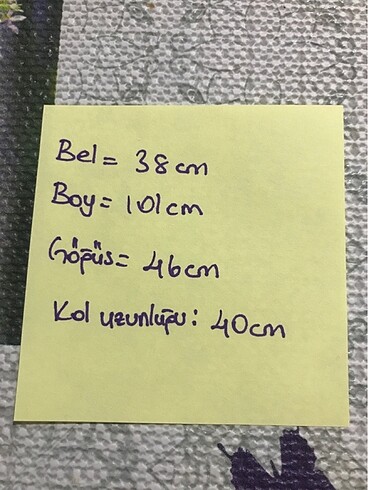 Bel = 38 cm
Boy = 101 cm
Göğüs = 46 cm
Kol uzunluğu : 40 cm